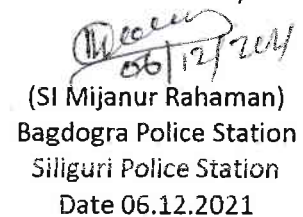 06/12/2021
(SI Mijanur Rahaman)
Bagdogra Police Station
Siliguri Police Station
Date 06.12.2021